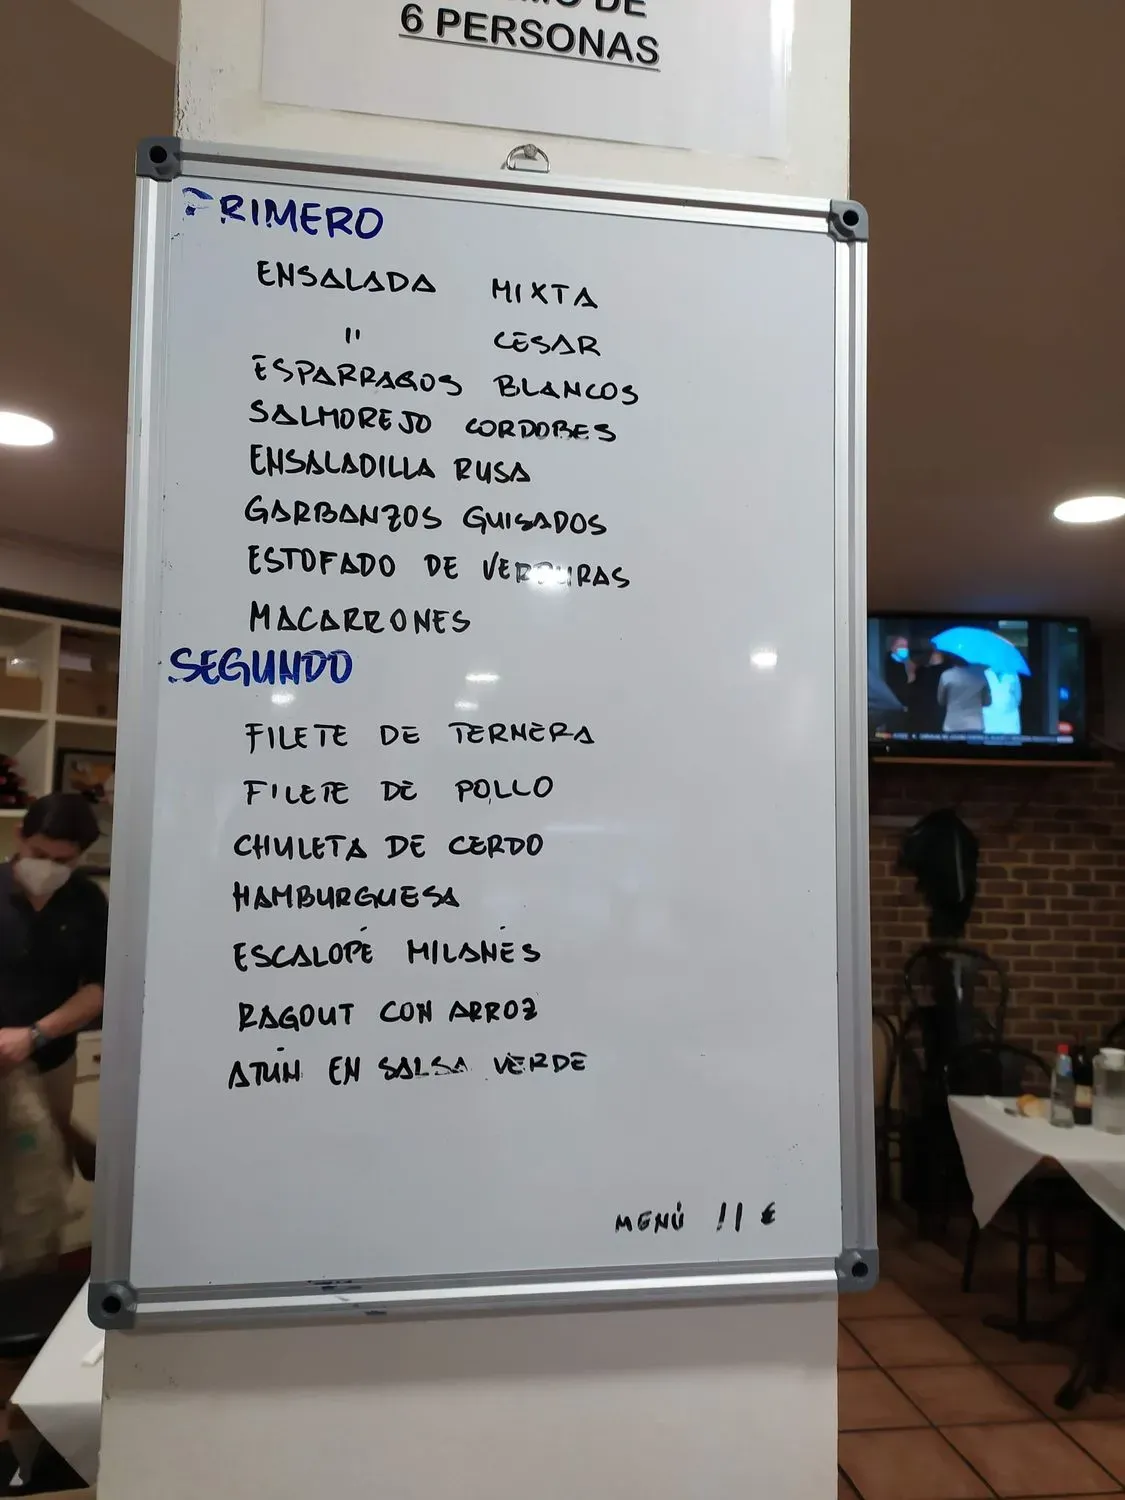 6 PERSONAS
PRIMERO
ENSALADA MIXTA
" CESAR
ESPARRAGOS BLANCOS
SALMOREJO CORDOBES
ENSALADILLA RUSA
GARBANZOS GUISADOS
ESTOFADO DE VERDURAS
MACARRONES
SEGUNDO
FILETE DE TERNERA
FILETE DE POLLO
CHULETA DE CERDO
HAMBURGUESA
ESCALOPE MILANÉS
RAGOUT CON ARROZ
ATÚN EN SALSA VERDE
MENÚ 11 €